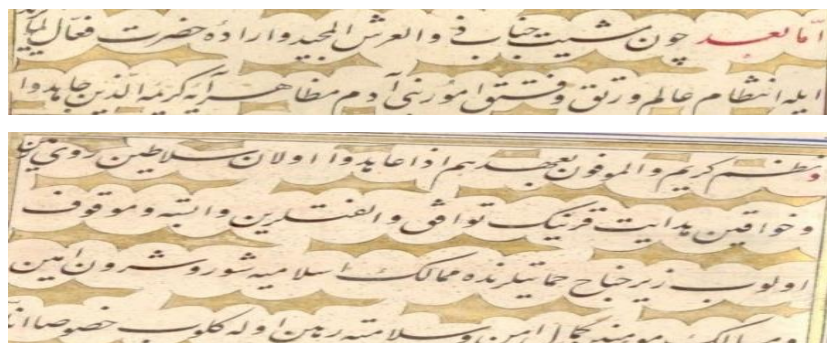 امّا بعد چون مشیت جناب ذو العرش المجید و اراده حضرت فعّال لما یرید
ایله انتظام عالم و رتق و فتق امور بنی آدم مظاهر آیه کریمه الّذین جاهدوا
و نظم کریم و الموفون بعهدهم اذا عاهدوا اولان سلاطین روی زمین
و خواقین هدایت قرینک توافق و الفتلرین وابسته و موقوف
اولوب زیر جناح حمایتلرنده ممالک اسلامیه شور و شرون امین
و مسالک مؤمنین کمال امن و سلامته رهین اوله کلوب خصوصا